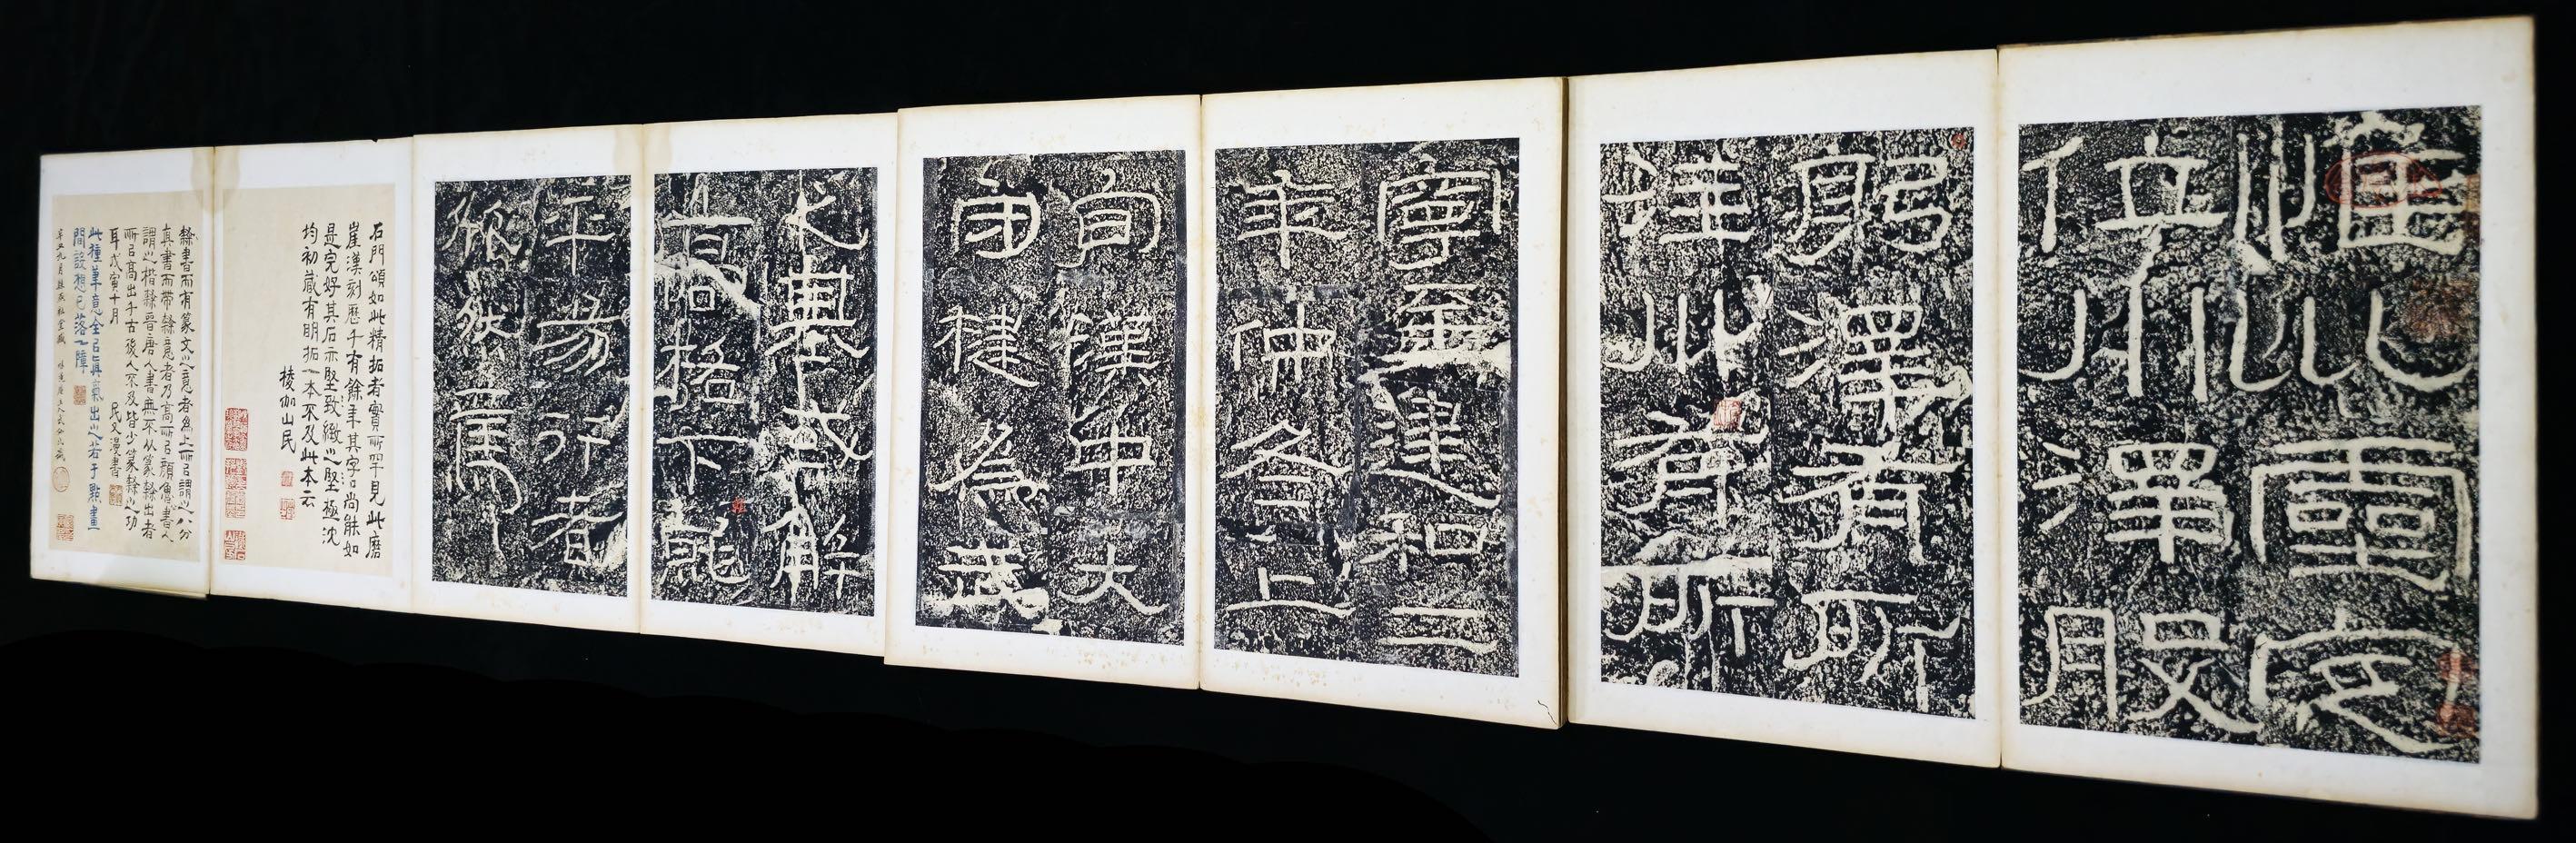 惟巛靈定
位川澤股
躬澤有所
注川有所
寧至建和二
年仲冬上
旬漢中大
守犍為武
之基或解
高格下就
平易行者
欣然焉
石門頌如此精拓者實所罕見此磨
崖漢刻歷千有餘年其字尚能如
是完好其石亦堅致緻之堅極沈
均初藏有明拓一本不及此本云
棱伽山民
隸書而有篆文之意者為上所以謂之八分
真書而帶隸意者乃高所以顏魯書人
謂之楷隸晉唐人書無不从篆隸出者
所以高出千古後人不及皆少篆隸之功
耳戊寅十月 民又漫書
此種筆意全以真氣出之若于點畫
間設想已落一障
辛丑九月